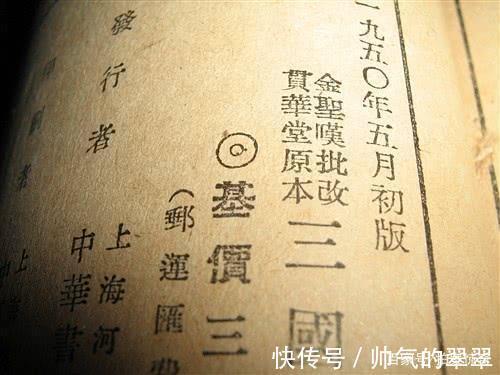 一九五〇年五月初版
金聖嘆批改
貫華堂原本
三國
◎基價三
（郵運匯費
發行者
上海河
中華書
快传号 / 帅气的翠翠